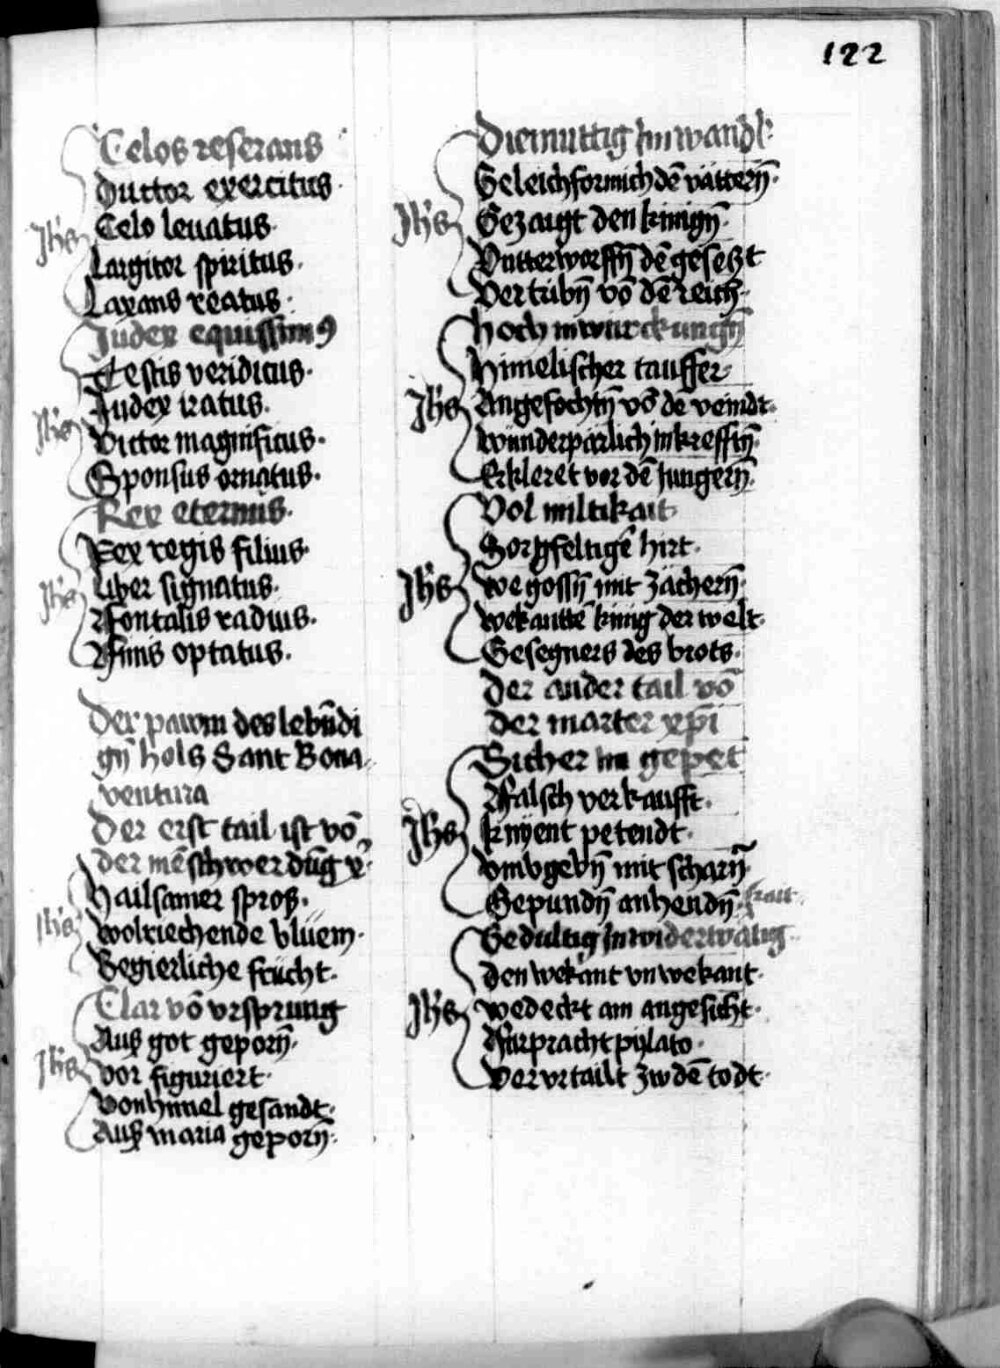 122
Celos reserans
Ductor exercitus.
Jhs Celo levatus.
Largitor spiritus.
Laxans reatus.
Judex equissim9
Testis veridicus.
Jhs Judex iratus.
Victor magnificus.
Sponsus ornatus.
Rex eternus.
Rex regis filius.
Jhs Liber signatus.
Ffontalis radius.
Ffinis optatus.
Der pawm des lebn̄di
gn̄ hols Sant Bona
ventura
Der erst tail ist vō
der mēschwerdūg x̄
Hailsamer sproß.
Jhs Wolriechende blüem.
Begierliche frücht.
Clar vō vrsprung
Auß got geporn̄.
Jhs Vor figuriert.
Von himel gesandt.
Auß maria geporn̄.
Diemuttig Jm wandl
Geleichformich dē vättern̄.
Jhs Gezaigt den kinign̄.
Vntterworffn̄ dē gesetzt
Vertribn̄ vō dē reich.
Hoch in würckungn̄
Himelischer tauffer
Jhs Angefochtn̄ vō de veindt.
Wunderparlich in krefftn̄.
Erkleret vor dē Jungern̄.
Vol miltikait
Sorgfeltigē hirt.
Jhs We gossn̄ mit zächern̄.
Wekantte kinig der welt.
Gesegners des brots.
Der ander tail vō
der marter xp̄i
Sicher im gepet
Ffalsch verkaufft.
Jhs Knyent petendt.
Vmbgebn̄ mit scharn̄
Gepundn̄ an hendn̄.
Gedultig Jn widerwätig
Den wekant vnwekant.
Jhs Wedeckt am angesicht.
Ffurpracht pylato.
Verurtailt zw dē todt.